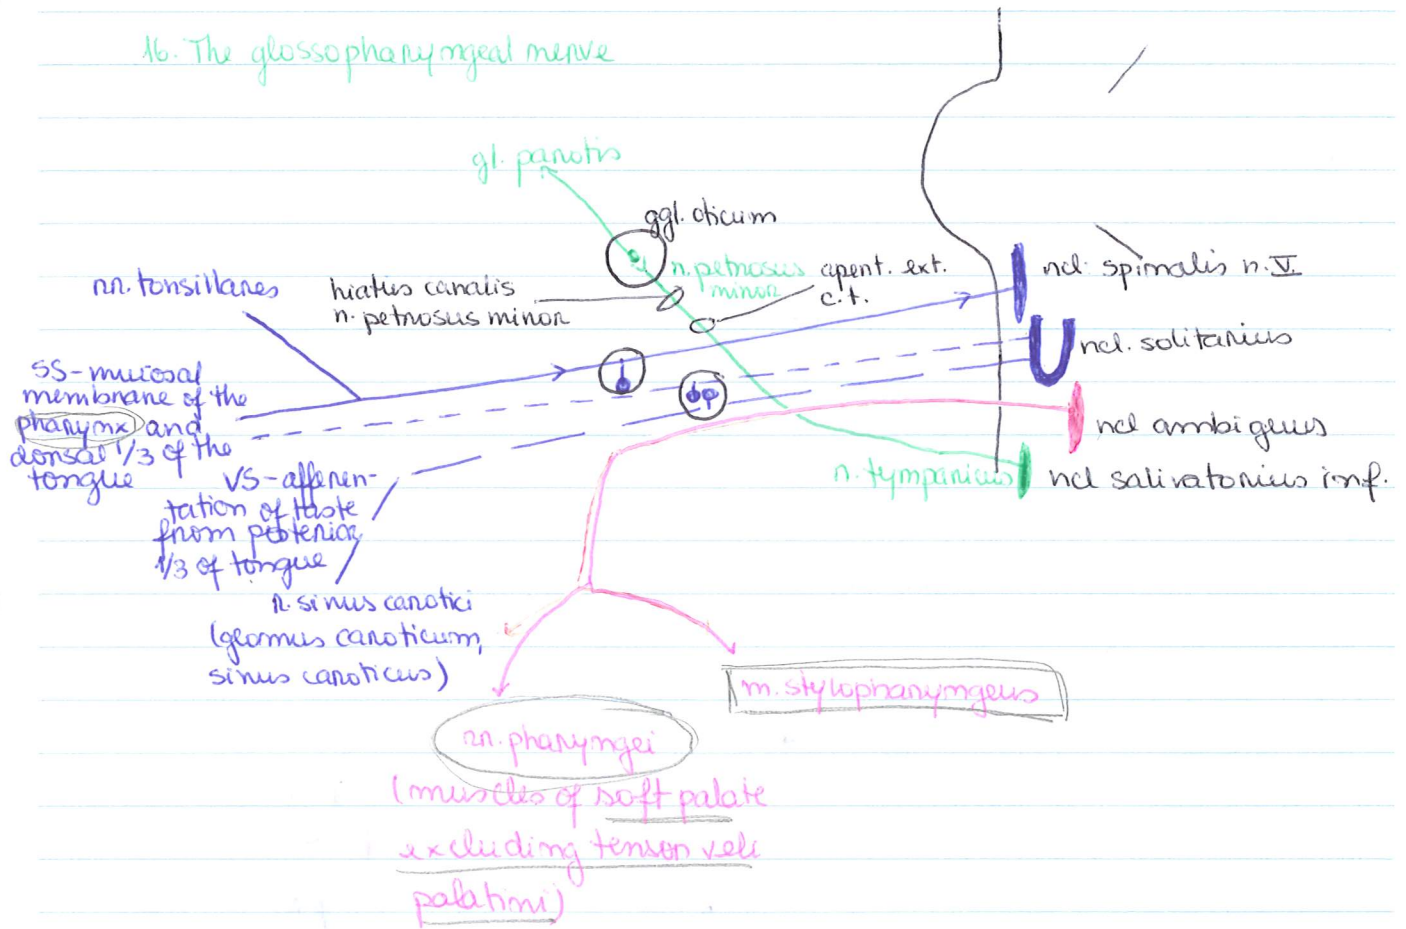 16. The glossopharyngeal nerve
gl. parotis
ggl. oticum
n. petrosus
minor
apert. ext.
c.t.
hiatus canalis
n. petrosus minor
rr. tonsillares
ncl. spinalis n. V.
ncl. solitarius
ncl ambiguus
ncl salivatorius inf.
n. tympanicus
SS-mucosal
membrane of the
pharynx and
dorsal 1/3 of the
tongue
VS-afferen-
tation of taste
from posterior
1/3 of tongue
r. sinus carotici
(glomus caroticum,
sinus caroticus)
m. stylopharyngeus
rr. pharyngei
(muscles of soft palate
excluding tensor veli
palatini)